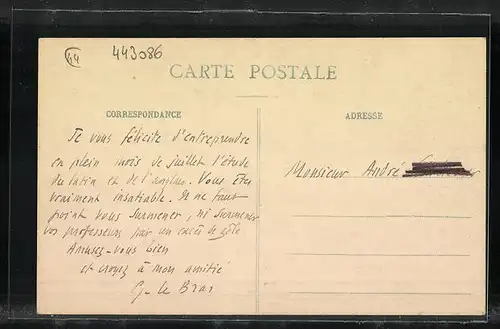 44
443086
CARTE POSTALE
CORRESPONDANCE
ADRESSE
Je vous félicite d'entreprendre
en plein mois de juillet l'étude
du latin et de l'anglais. Vous êtes
vraiment insatiable. Il ne faut
point vous surmener, ni surmener
vos professeurs par un excès de zèle
Amusez-vous bien
et croyez à mon amitié
G. le Bras
Monsieur André